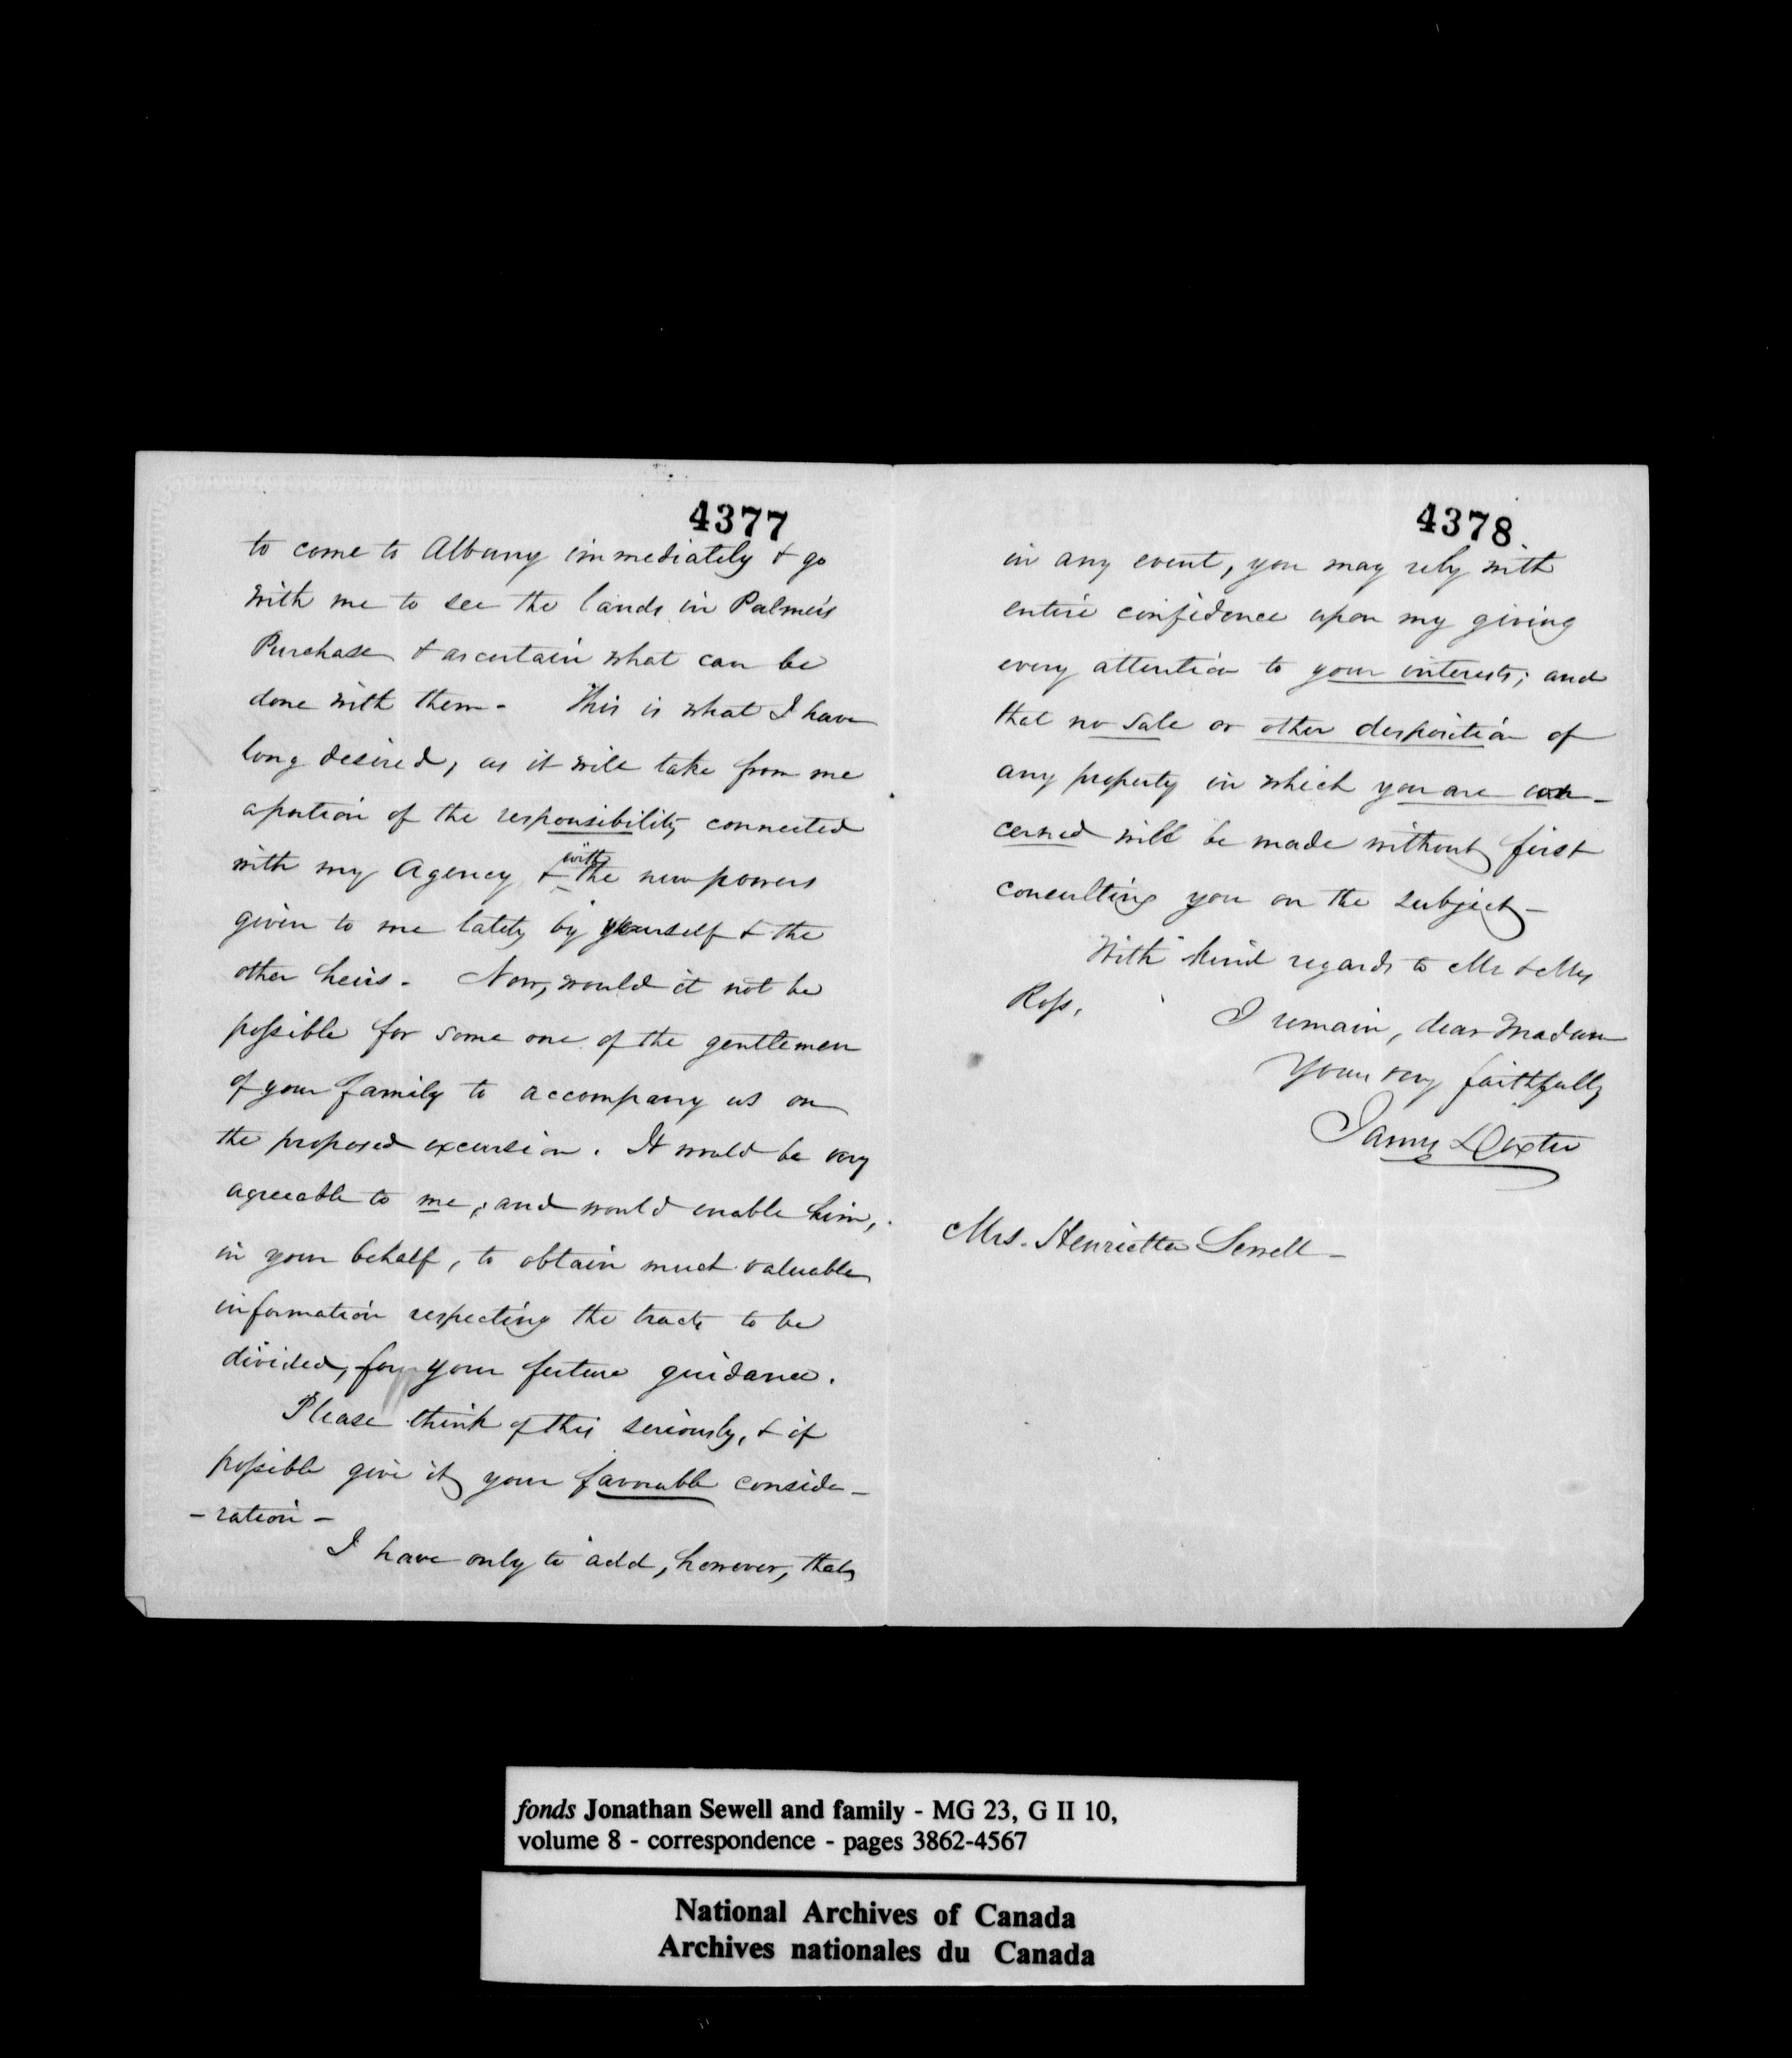 4377
to come to Albany immediately & go
with me to see the lands in Palmer's
Purchase & ascertain what can be
done with them - This is what I have
long desired, as it will take from me
a portion of the responsibility connected
with my Agency & with the new powers
given to me lately by yourself & the
other heirs. Now, would it not be
possible for some one of the gentlemen
of your family to accompany us on
the proposed excursion. It would be very
agreeable to me, and would enable him,
in your behalf, to obtain much valuable
information respecting the tracts to be
divided, for your future guidance.
Please think of this seriously, & if
possible give it your favorable conside-
-ration -
I have only to add, however, that,
4378
in any event, you may rely with
entire confidence upon my giving
every attention to your interests; and
that no sale or other disposition of
any property in which you are con-
cerned will be made without first
consulting you on the subject -
With kind regards to Mr & Mrs
Ross,
I remain, dear Madam
Yours very faithfully
James Dexter
Mrs. Henrietta Sewell -
fonds Jonathan Sewell and family - MG 23, G II 10,
volume 8 - correspondence - pages 3862-4567
National Archives of Canada
Archives nationales du Canada